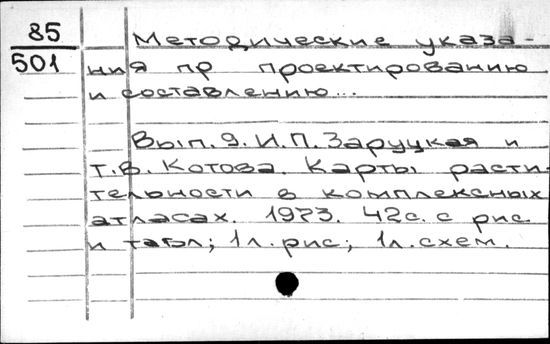 85
501
Методические указа-
ния пр проектированию
и составлению...
Вып. 9. И.П. Заруцкая и
Т.В. Котова. Карты расти-
тельности в комплексных
атласах. 1973. 42с. с рис.
и табл; 1л. рис; 1л. схем.